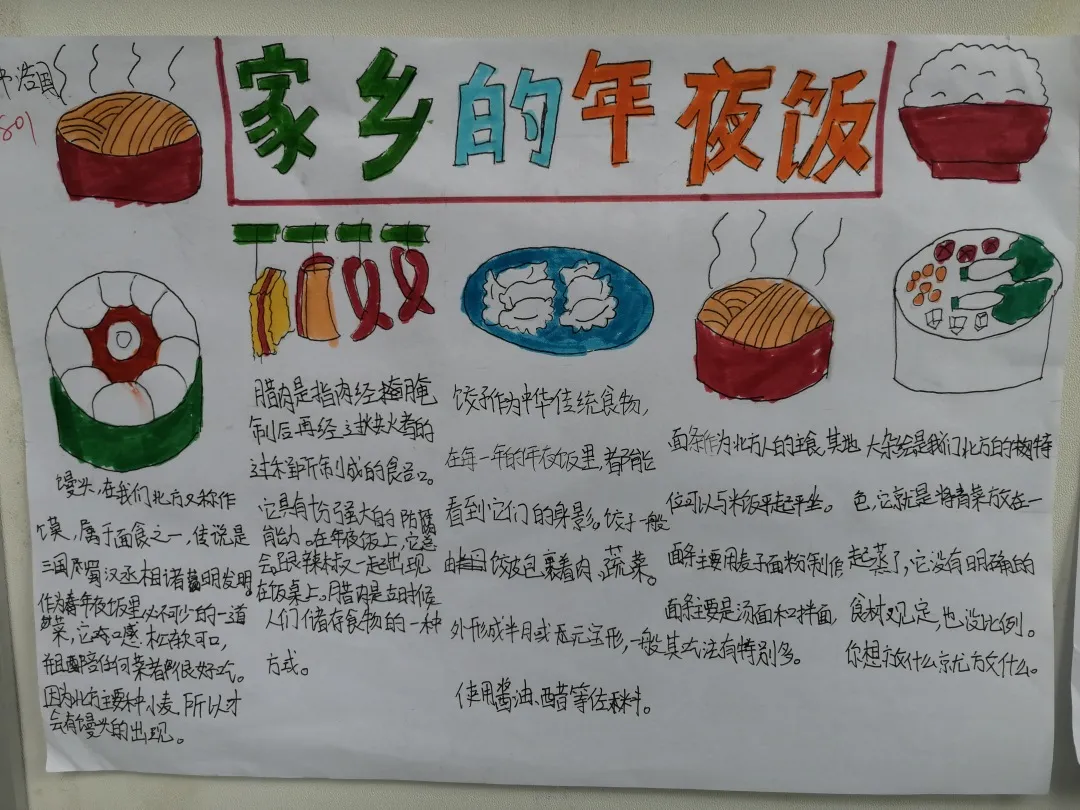 浩国
801
家乡的年夜饭
馒头,在我们北方又称作
馍,属于面食之一,传说是
三国蜀汉丞相诸葛明发明。
作为年夜饭里必不可少的一道
菜,它吃口感松软可口,
陪任何菜都很好吃。
因为北方主要种小麦,所以才
会有馒头的出现。
腊肉是指肉经腌
制后再经过烘火者的
过程所制成的食品。
它具有十分强大的防腐
能力。在年夜饭上,它总
会跟辣椒一起出现
在饭桌上。腊肉是古时候
人们储存食物的一种
方式。
饺子作为中华传统食物,
在每一年的年夜饭里,都能
看到它们的身影。饺子一般
由饺皮包裹着肉、蔬菜。
外形成半月或元宝形,一般
使用酱油、醋等佐料。
面条作为北方人的主食,其地
位可以与米饭平起平坐。
面条主要用麦子面粉制作
面条主要是汤面和拌面,
其吃法有特别多。
大杂烩是我们北方的特
色,它就是将青菜放在一
起蒸了,它没有明确的
食材规定,也没比例。
你想放什么就方放什么。